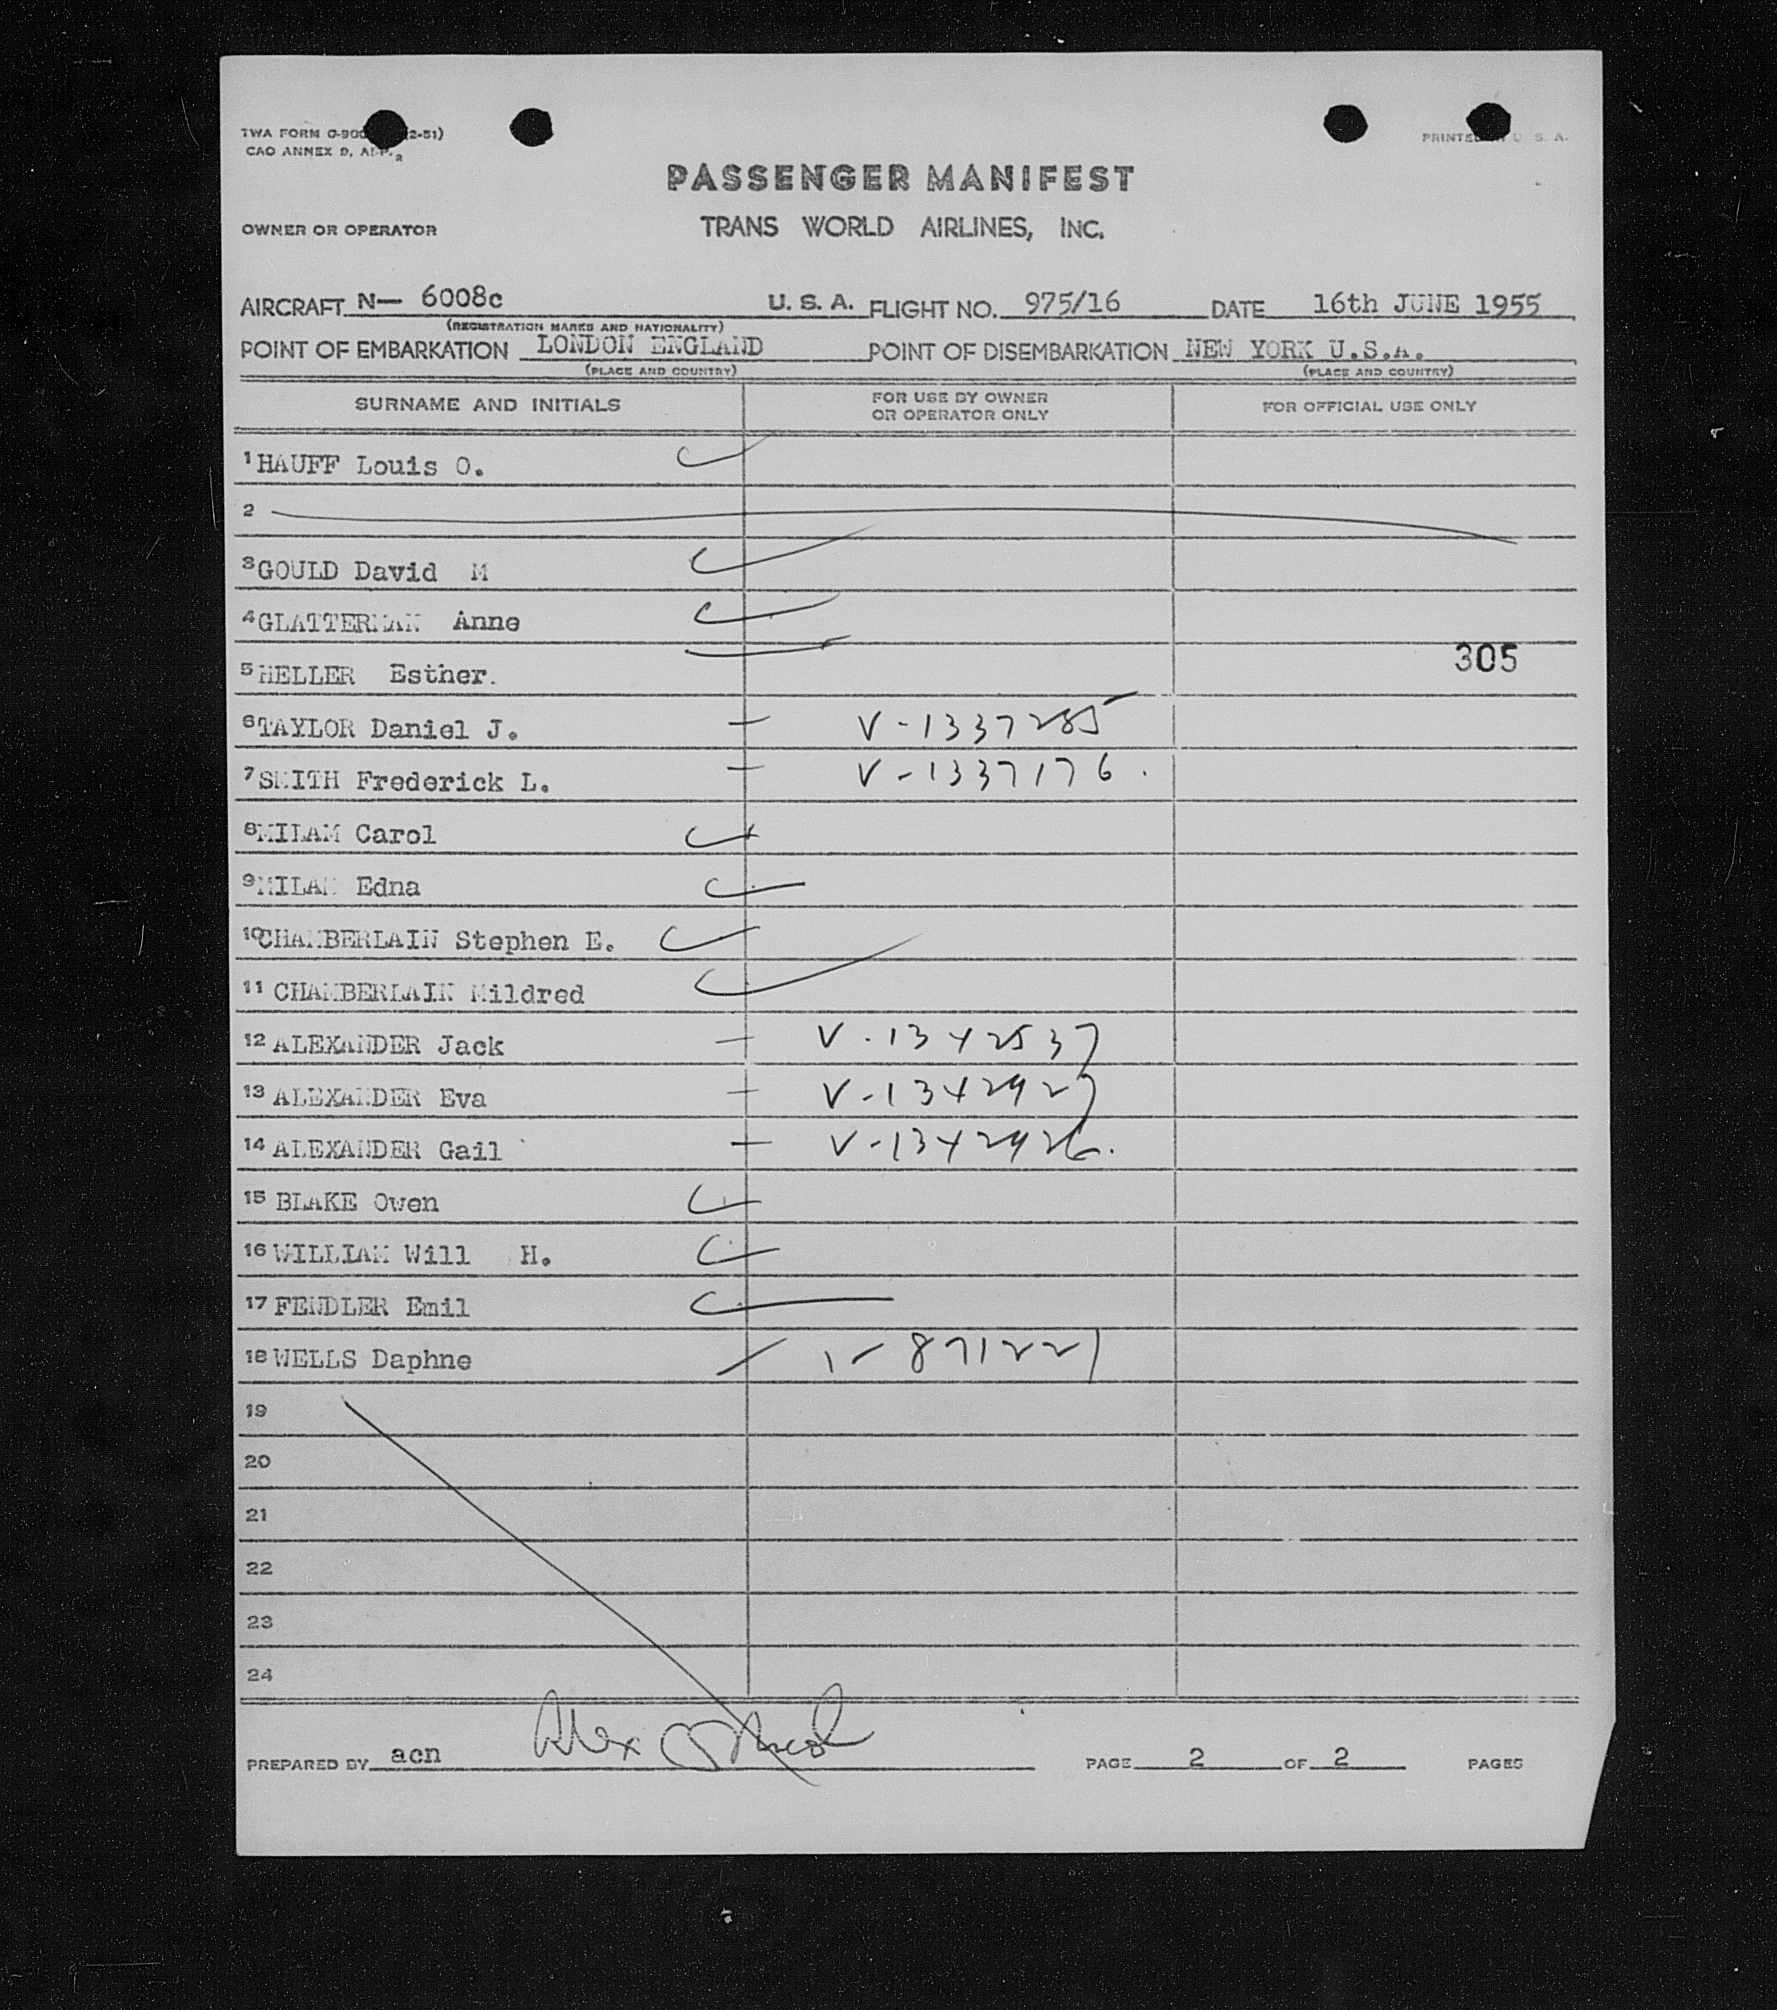 TWA FORM O-900 (2-51)
CAO ANNEX 9, APP. 2
PRINTED IN U. S. A.
PASSENGER MANIFEST
OWNER OR OPERATOR
TRANS WORLD AIRLINES, INC.
AIRCRAFT N— 6008c U. S. A. FLIGHT NO. 975/16 DATE 16th JUNE 1955
(REGISTRATION MARKS AND NATIONALITY)
POINT OF EMBARKATION LONDON ENGLAND POINT OF DISEMBARKATION NEW YORK U.S.A.
(PLACE AND COUNTRY) (PLACE AND COUNTRY)
SURNAME AND INITIALS FOR USE BY OWNER OR OPERATOR ONLY FOR OFFICIAL USE ONLY
1 HAUFF Louis O.
2
3 GOULD David M
4 GLATTERMAN Anne
5 HELLER Esther. 305
6 TAYLOR Daniel J. V-1337285
7 SMITH Frederick L. V-1337176.
8 MILAM Carol
9 MILAM Edna
10 CHAMBERLAIN Stephen E.
11 CHAMBERLAIN Mildred
12 ALEXANDER Jack V-1342537
13 ALEXANDER Eva V-1342927
14 ALEXANDER Gail V-1342926.
15 BLAKE Owen
16 WILLIAM Will H.
17 FENDLER Emil
18 WELLS Daphne V-871221
19
20
21
22
23
24
PREPARED BY acn Alex PAGE 2 OF 2 PAGES